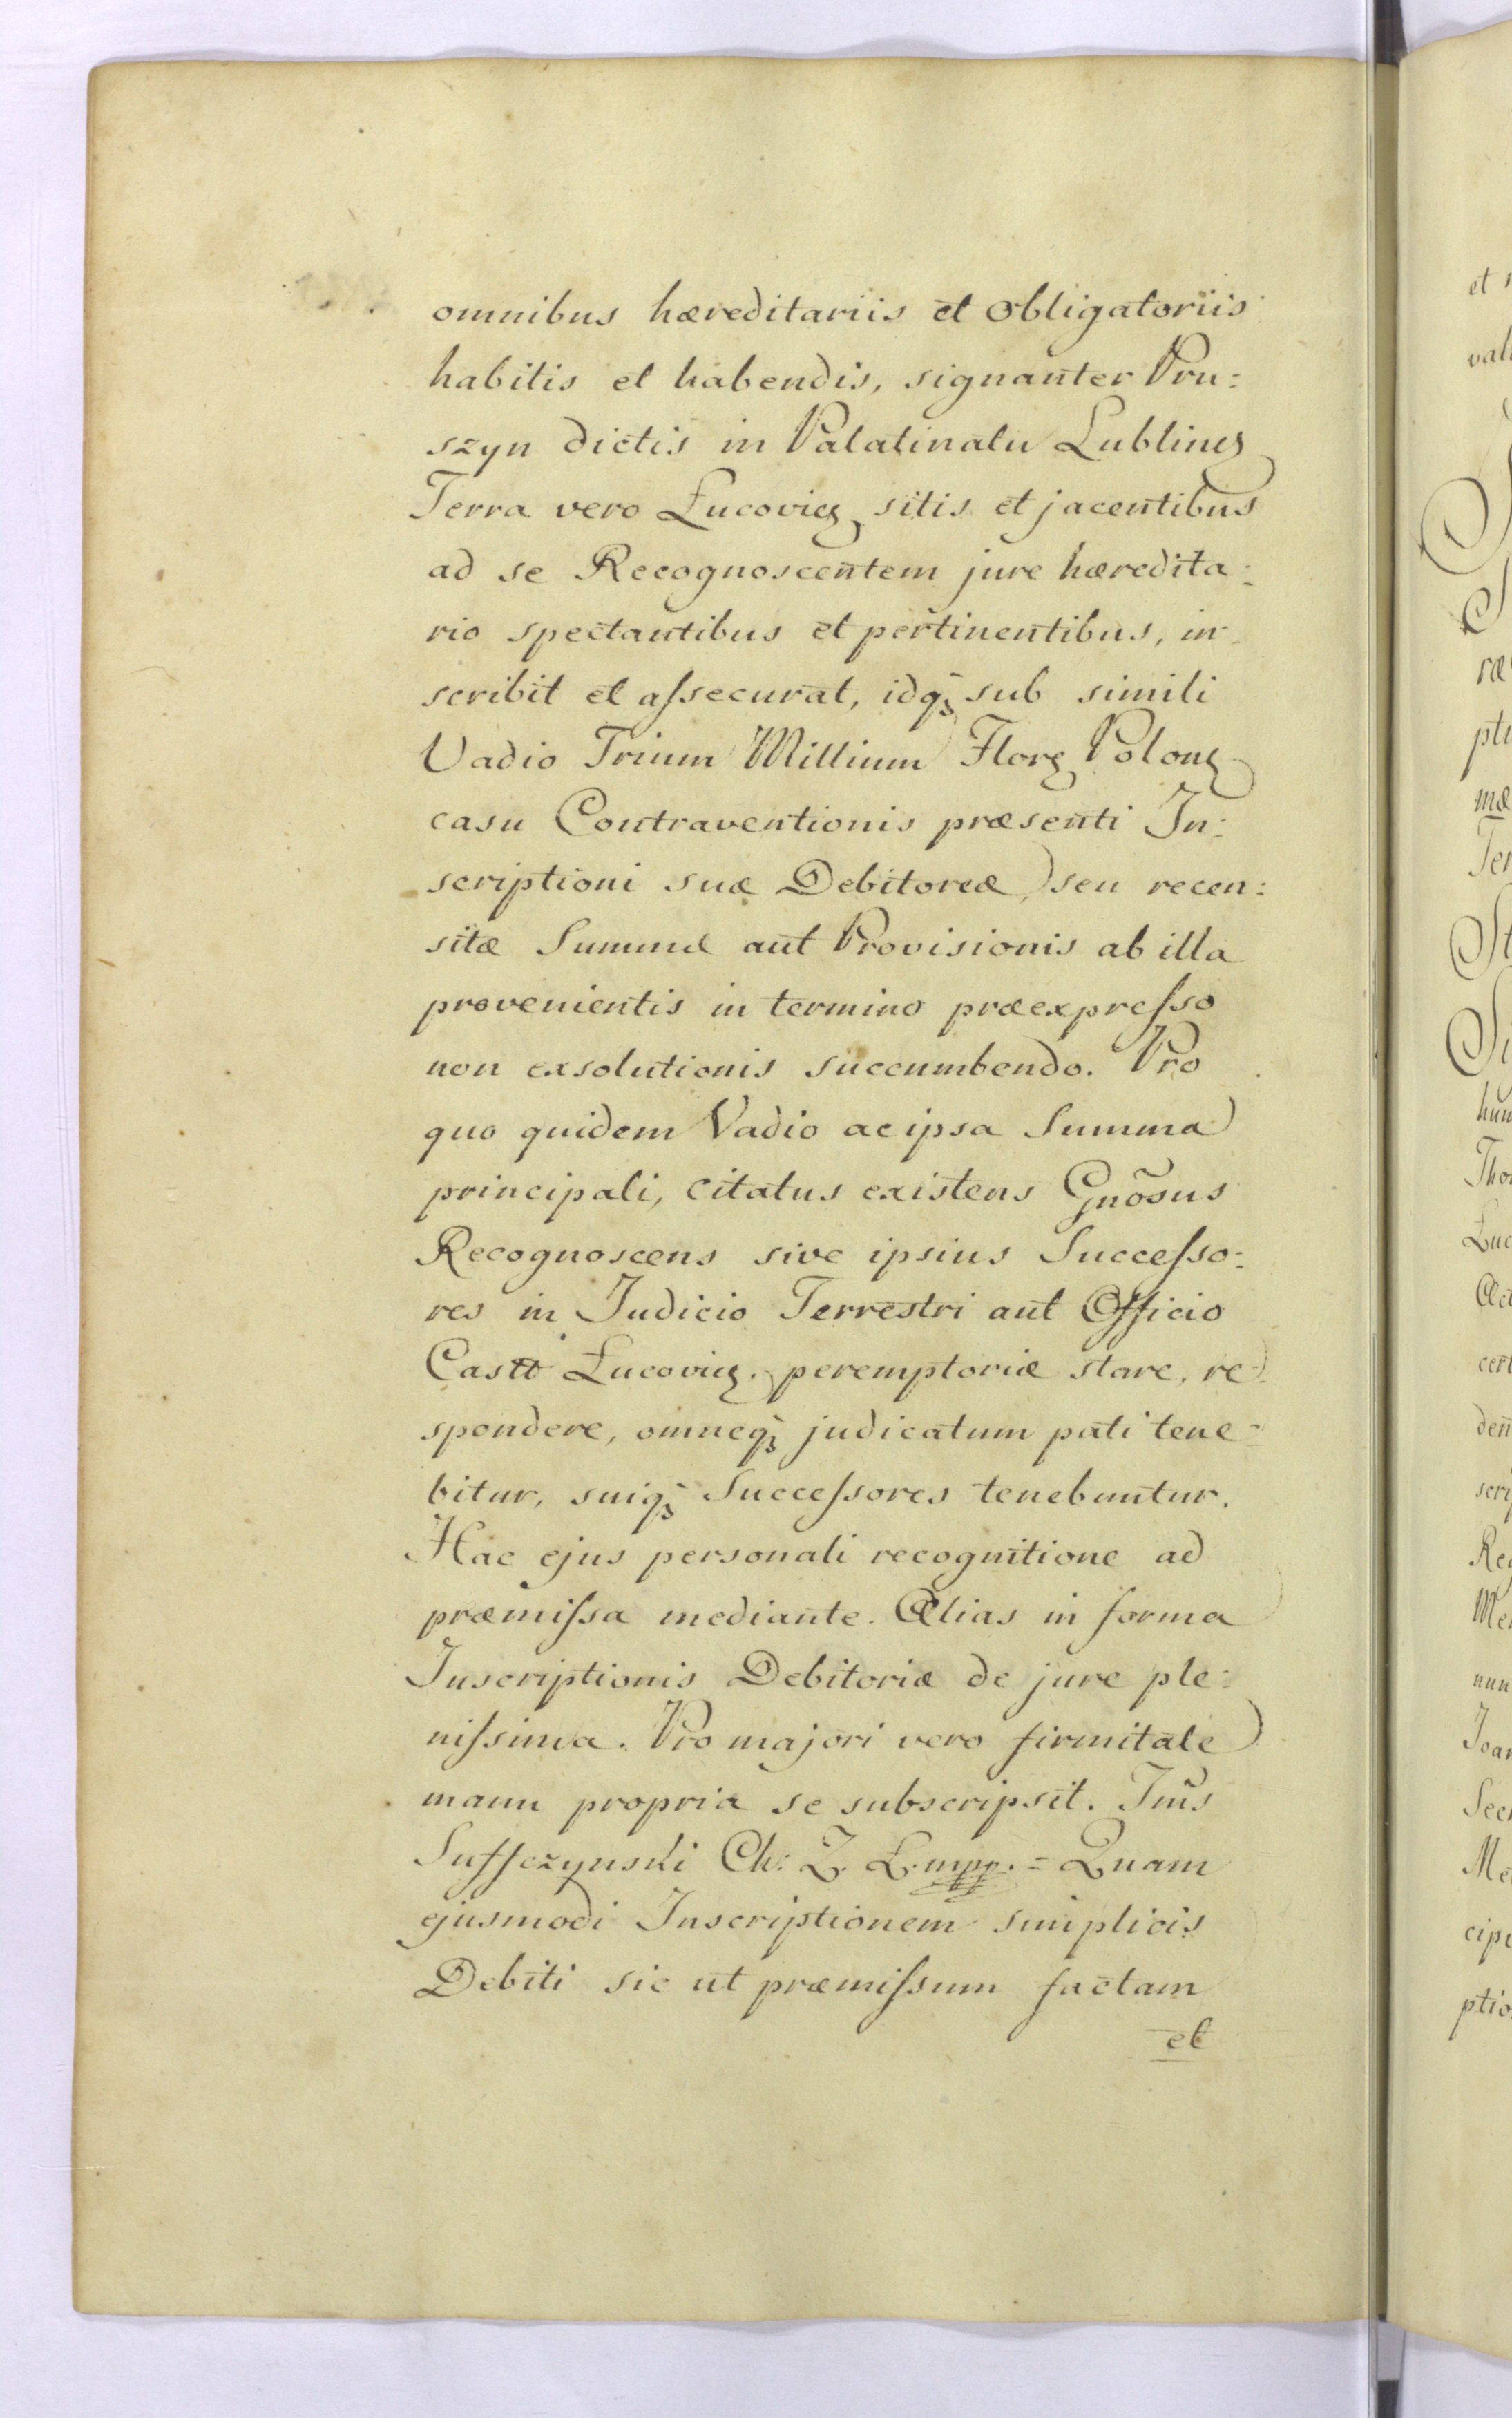 omnibus hæreditariis et obligatoriis
habitis et habendis, signanter Pru:
szyn dictis in Palatinatu Lublinꝫ
Terra vero Łucovieꝫ sitis et jacentibus
ad se Recognoscentem jure hæredita:
rio spectantibus et pertinentibus, in:
scribit et aſsecurat, idqꝫ sub simili
Vadio Trium Millium Florꝫ Polonꝫ
casu Contraventionis præsenti In:
scriptioni suæ Debitoreæ, seu recen:
sitæ Summæ aut Provisionis ab illa
provenientis in termino præexpreſso
non exsolutionis succumbendo. Pro
quo quidem Vadio ac ipsa Summa
principali, citatus existens Gnõsus
Recognoscens sive ipsius Succeſso:
res in Judicio Terrestri aut Officio
Castt Łucovieꝫ. peremptoriæ stare, re:
spondere, omneqꝫ judicatum pati tene:
bitur, suiqꝫ Succeſsores tenebuntur.
Hac ejus personali recognitione ad
præmiſsa mediante. Alias in forma
Inscriptionis Debitoriæ de jure ple:
niſsima. Pro majori vero firmitate
manu propria se subscripsit. Ims̃
Suffczynski Ch: Z. Ł. mpp. = Quam
ejusmodi Inscriptionem simplicis
Debiti sic ut præmiſsum factam
et